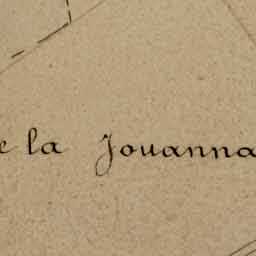 e la Jouanna